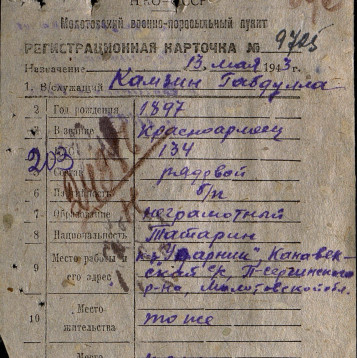 НКО-СССР
Молотовский военно-пересыльный пункт
РЕГИСТРАЦИОННАЯ КАРТОЧКА № 9723
Назначение 13 мая 1943 г.
1. В/служащий Камзин Габдулла-
2 Год рождения 1897
3 В звание Красноармеец
203 134
Состав рядовой
6 Партийность б/п
7 Образование неграмотный
8 Национальность Татарин
9 Место работы и его адрес
к-з "Ударник", Канабек-
ской с/с, П-Сергинского
р-на, Молотовской обл.
10 Место жительства то же
Место